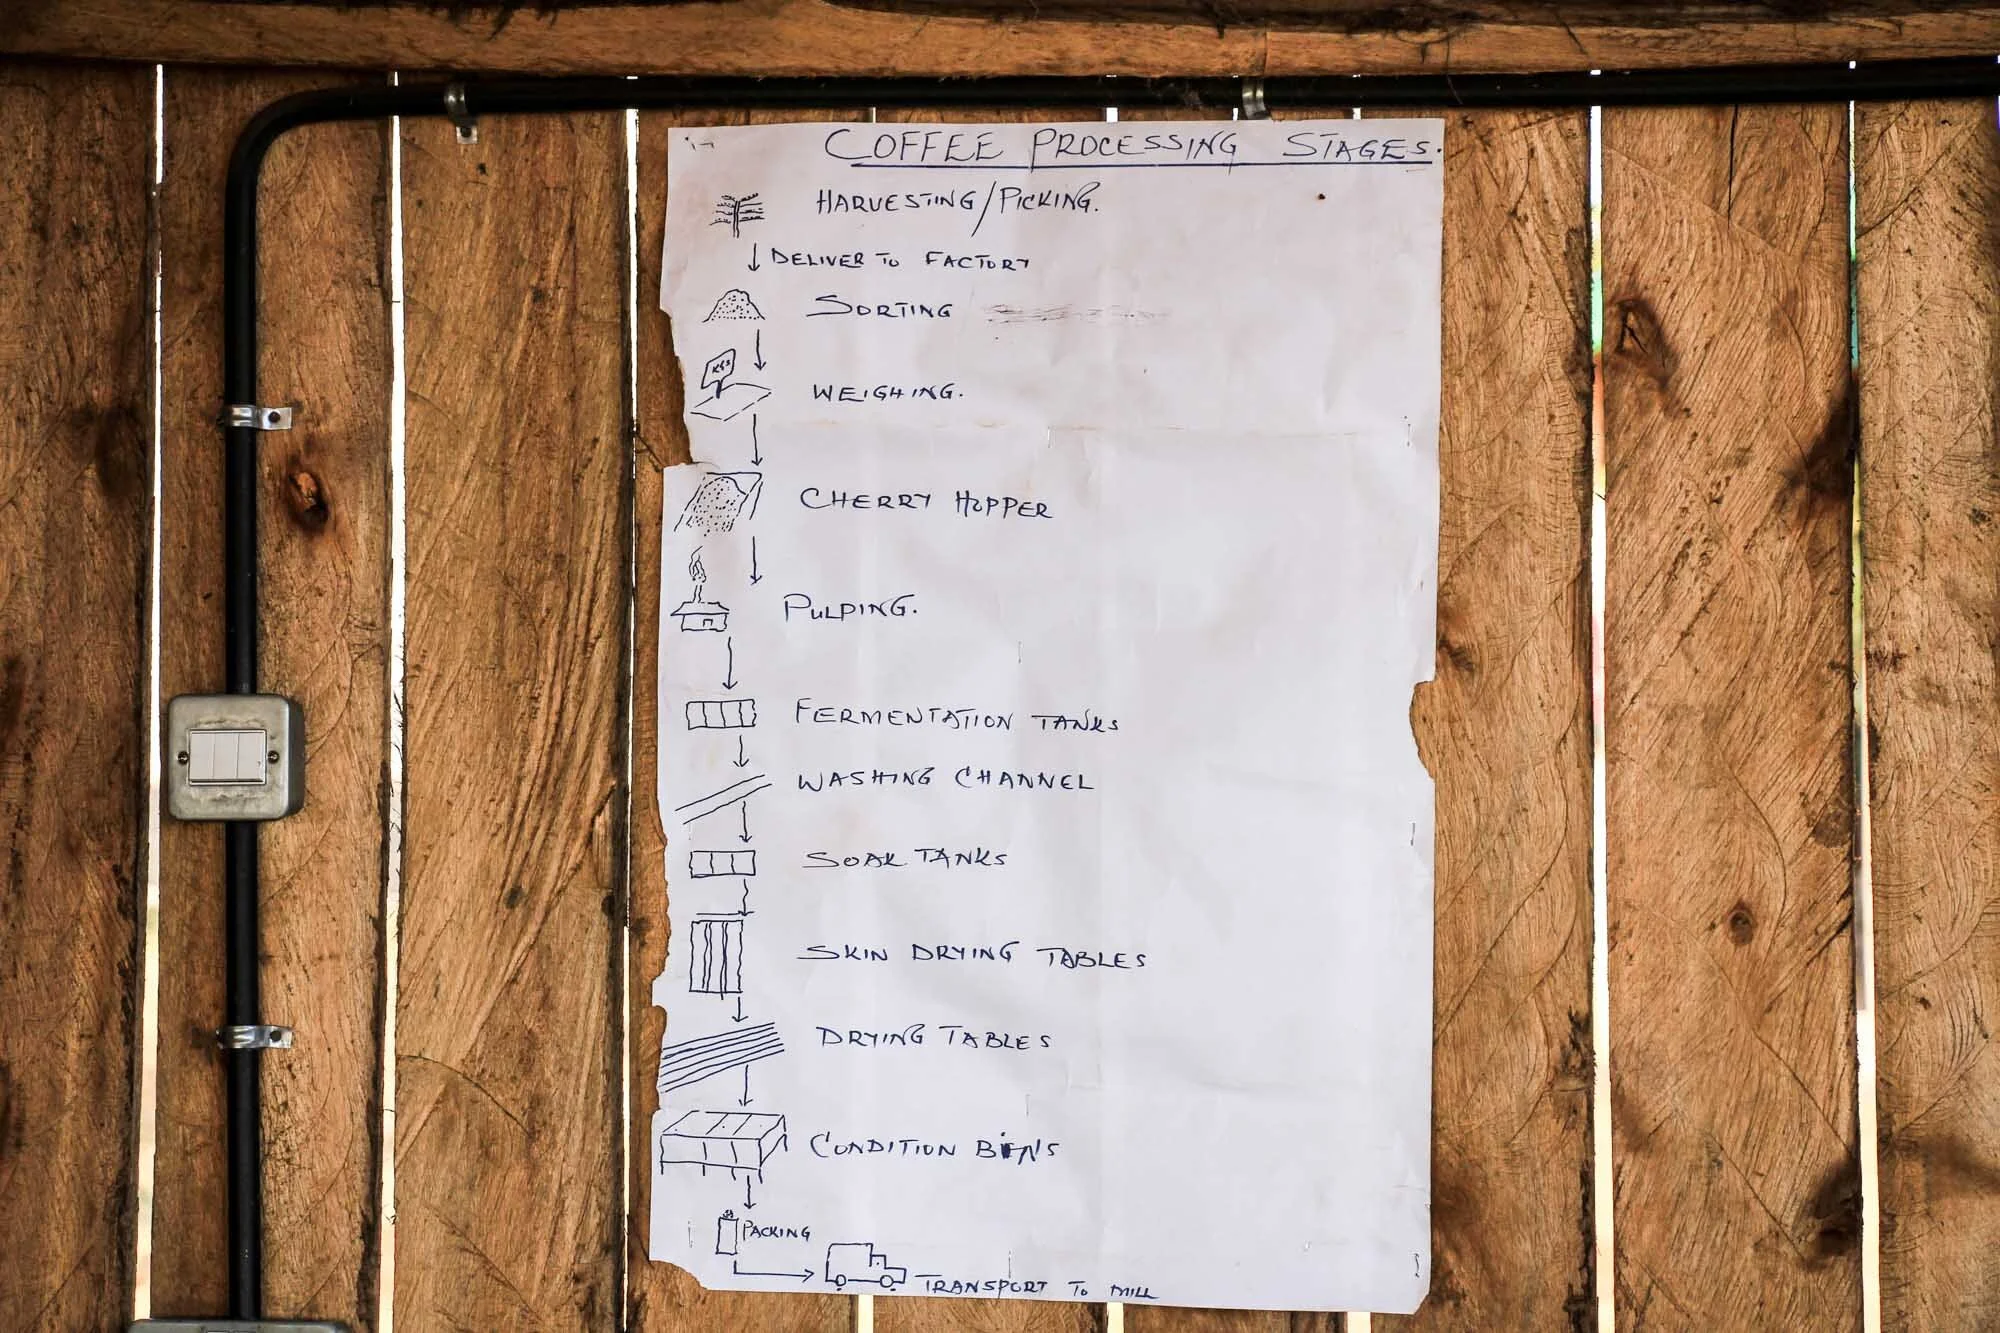 COFFEE PROCESSING STAGES.
HARVESTING/PICKING.
DELIVER TO FACTORY
SORTING
KGS
WEIGHING.
CHERRY HOPPER
PULPING.
FERMENTATION TANKS
WASHING CHANNEL
SOAK TANKS
SKIN DRYING TABLES
DRYING TABLES
CONDITION BINS
PACKING
TRANSPORT TO MILL